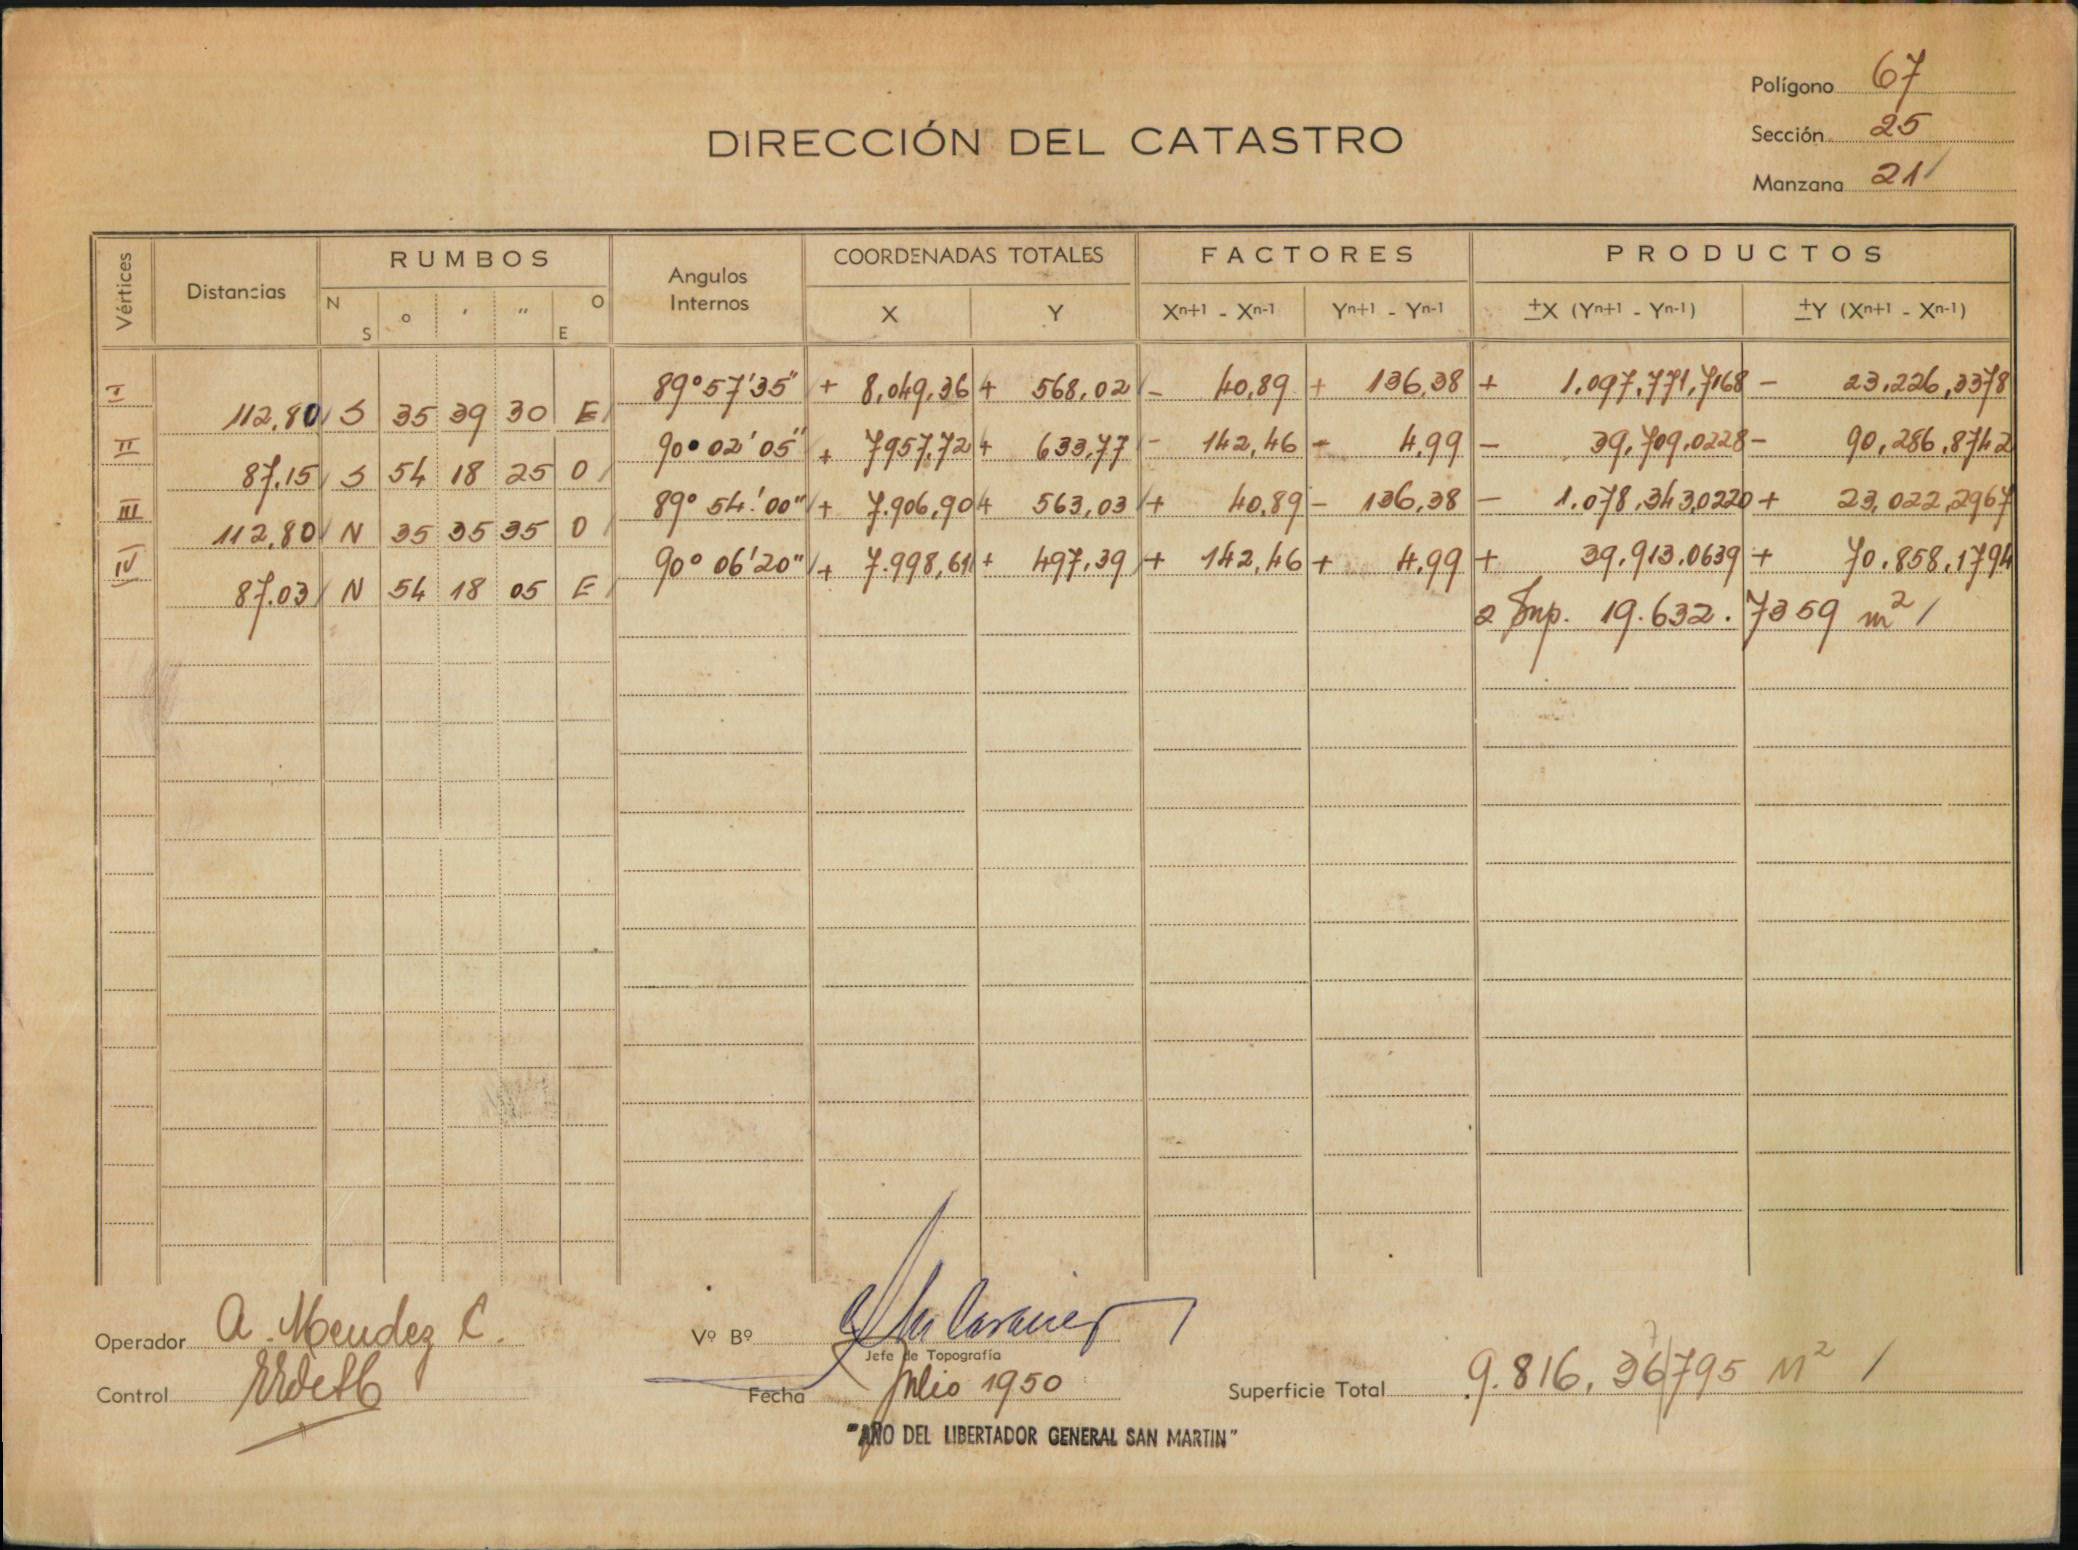 Polígono 67
DIRECCIÓN DEL CATASTRO
Sección 25
Manzana 21/
Vértices Distancias RUMBOS Angulos Internos COORDENADAS TOTALES FACTORES PRODUCTOS
N S o ' " O E X Y Xn+1 - Xn-1 Yn+1 - Yn-1 ±X (Yn+1 - Yn-1) ±Y (Xn+1 - Xn-1)
I 89° 57' 35" / + 8,049.36 + 568.02 / - 40.89 + 136.38 + 1.097.771,7168 - 23.226,3378
112.80 / S 35 39 30 E /
II 90° 02' 05" / + 7957,72 + 633,77 - 142,46 - 4.99 - 39,709.0228 - 90,286.8742
87.15 / S 54 18 25 O /
III 89° 54' 00" / + 7.906,90 + 563,03 / + 40.89 - 136,38 - 1.078.343,0220 + 23,022,2967
112.80 / N 35 35 35 O /
IV 90° 06' 20" / + 7.998,61 + 497.39 / + 142,46 + 4.99 + 39.913.0639 + 70.858.1794
87.03 / N 54 18 05 E /
2 Sup. 19.632.7359 m² /
Operador A. Mendez C.
Vº Bº
Jefe de Topografía
Control
Fecha Julio 1950
Superficie Total 9.816, 36795 M² /
7
"AÑO DEL LIBERTADOR GENERAL SAN MARTIN"